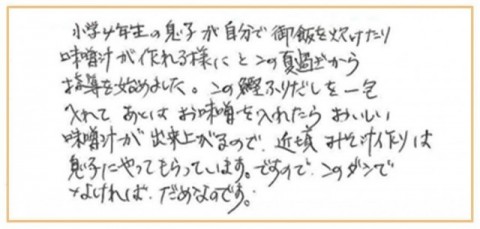 小学4年生の息子が自分で御飯を炊けたり
味噌汁が作れる様にとこの夏過ぎから
指導を始めました。この鰹ふりだしを一包
入れてあとはお味噌を入れたらおいしい
味噌汁が出来上がるので、近頃みそ汁作りは
息子にやってもらっています。ですので、このダシで
なければ、だめなのです。